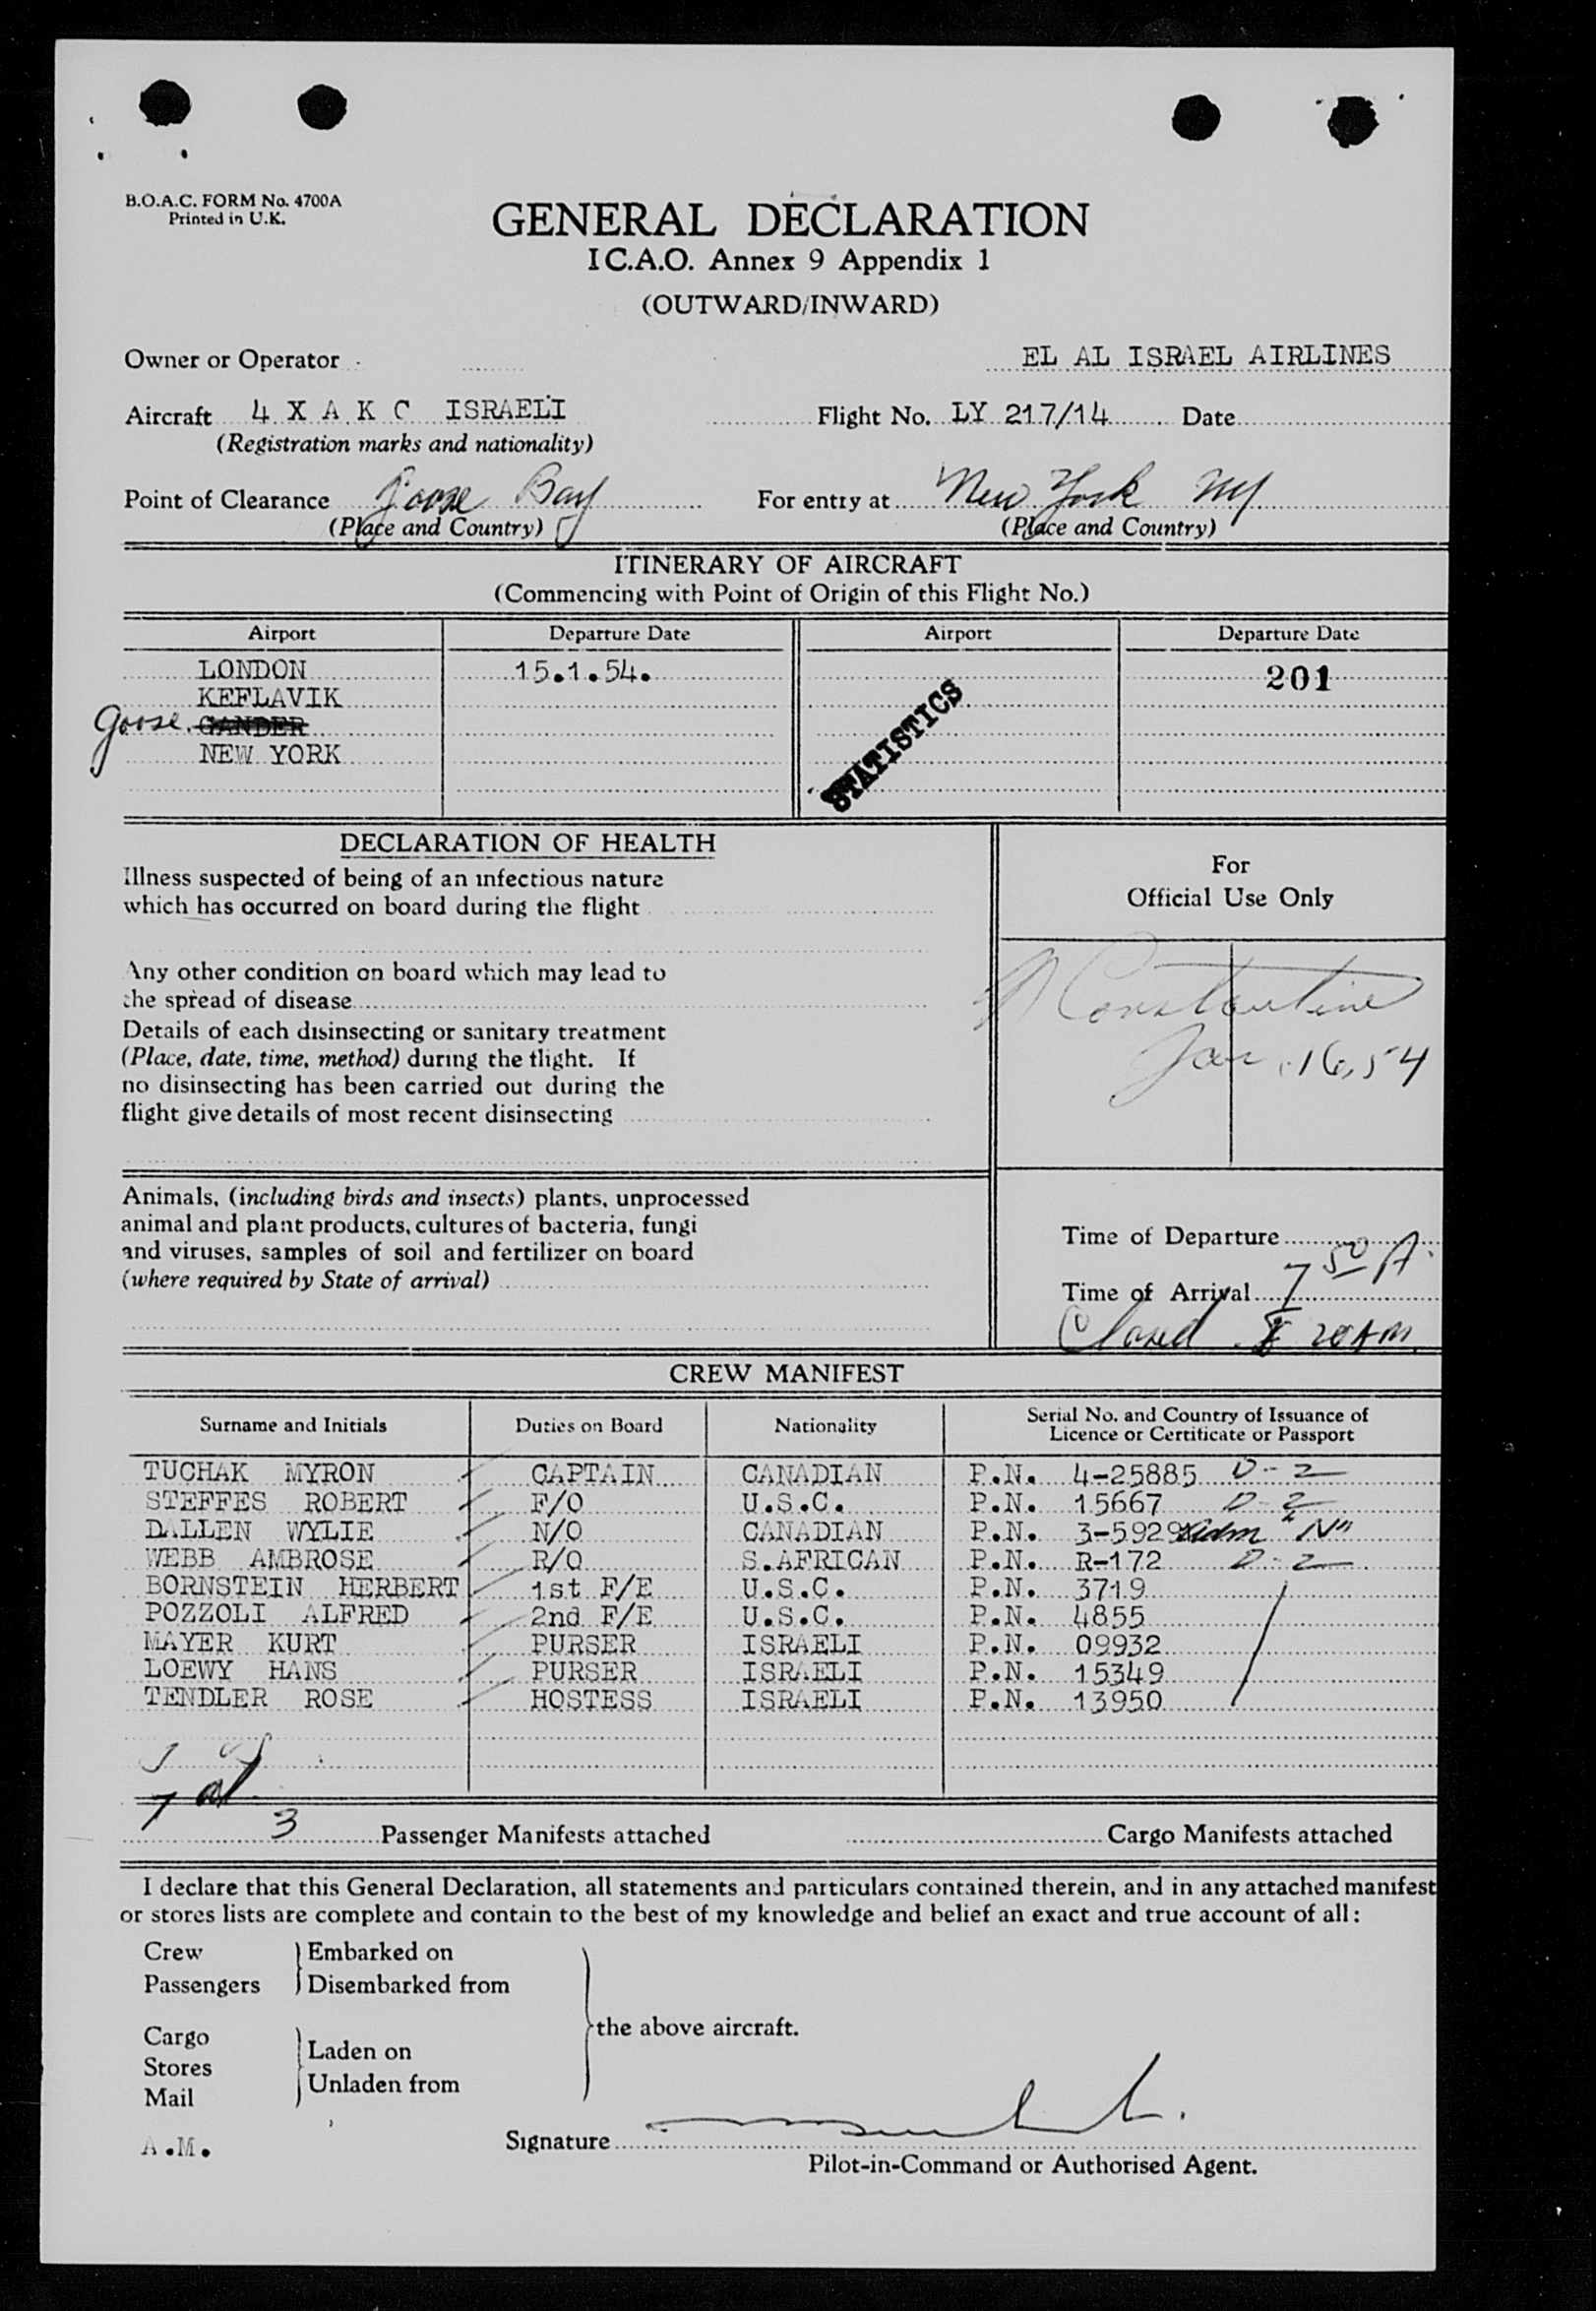 B.O.A.C. FORM No. 4700A
Printed in U.K.
GENERAL DECLARATION
I C.A.O. Annex 9 Appendix 1
(OUTWARD/INWARD)
Owner or Operator EL AL ISRAEL AIRLINES
Aircraft 4 X A K C ISRAELI Flight No. LY 217/14 Date
(Registration marks and nationality)
Point of Clearance Goose Bay For entry at New York NY
(Place and Country) (Place and Country)
ITINERARY OF AIRCRAFT
(Commencing with Point of Origin of this Flight No.)
Airport Departure Date Airport Departure Date
LONDON 15.1.54. 201
KEFLAVIK
Goose GANDER
NEW YORK
STATISTICS
DECLARATION OF HEALTH
Illness suspected of being of an infectious nature
which has occurred on board during the flight
Any other condition on board which may lead to
the spread of disease
Details of each disinsecting or sanitary treatment
(Place, date, time, method) during the flight. If
no disinsecting has been carried out during the
flight give details of most recent disinsecting
For
Official Use Only
Constantine
Jan. 16, 54
Animals, (including birds and insects) plants, unprocessed
animal and plant products, cultures of bacteria, fungi
and viruses, samples of soil and fertilizer on board
(where required by State of arrival)
Time of Departure
Time of Arrival 7 50 A
Closed 20 AM
CREW MANIFEST
Surname and Initials Duties on Board Nationality Serial No. and Country of Issuance of
Licence or Certificate or Passport
TUCHAK MYRON CAPTAIN CANADIAN P.N. 4-25885 D-2
STEFFES ROBERT F/O U.S.C. P.N. 15667 D-2
DALLEN WYLIE N/O CANADIAN P.N. 3-5929 Adm "N"
WEBB AMBROSE R/O S.AFRICAN P.N. R-172 D-2
BORNSTEIN HERBERT 1st F/E U.S.C. P.N. 3719
POZZOLI ALFRED 2nd F/E U.S.C. P.N. 4855
MAYER KURT PURSER ISRAELI P.N. 09932
LOEWY HANS PURSER ISRAELI P.N. 15349
TENDLER ROSE HOSTESS ISRAELI P.N. 13950
7 al
3 Passenger Manifests attached Cargo Manifests attached
I declare that this General Declaration, all statements and particulars contained therein, and in any attached manifest
or stores lists are complete and contain to the best of my knowledge and belief an exact and true account of all:
Crew Embarked on
Passengers Disembarked from
the above aircraft.
Cargo
Stores Laden on
Mail Unladen from
A.M. Signature
Pilot-in-Command or Authorised Agent.